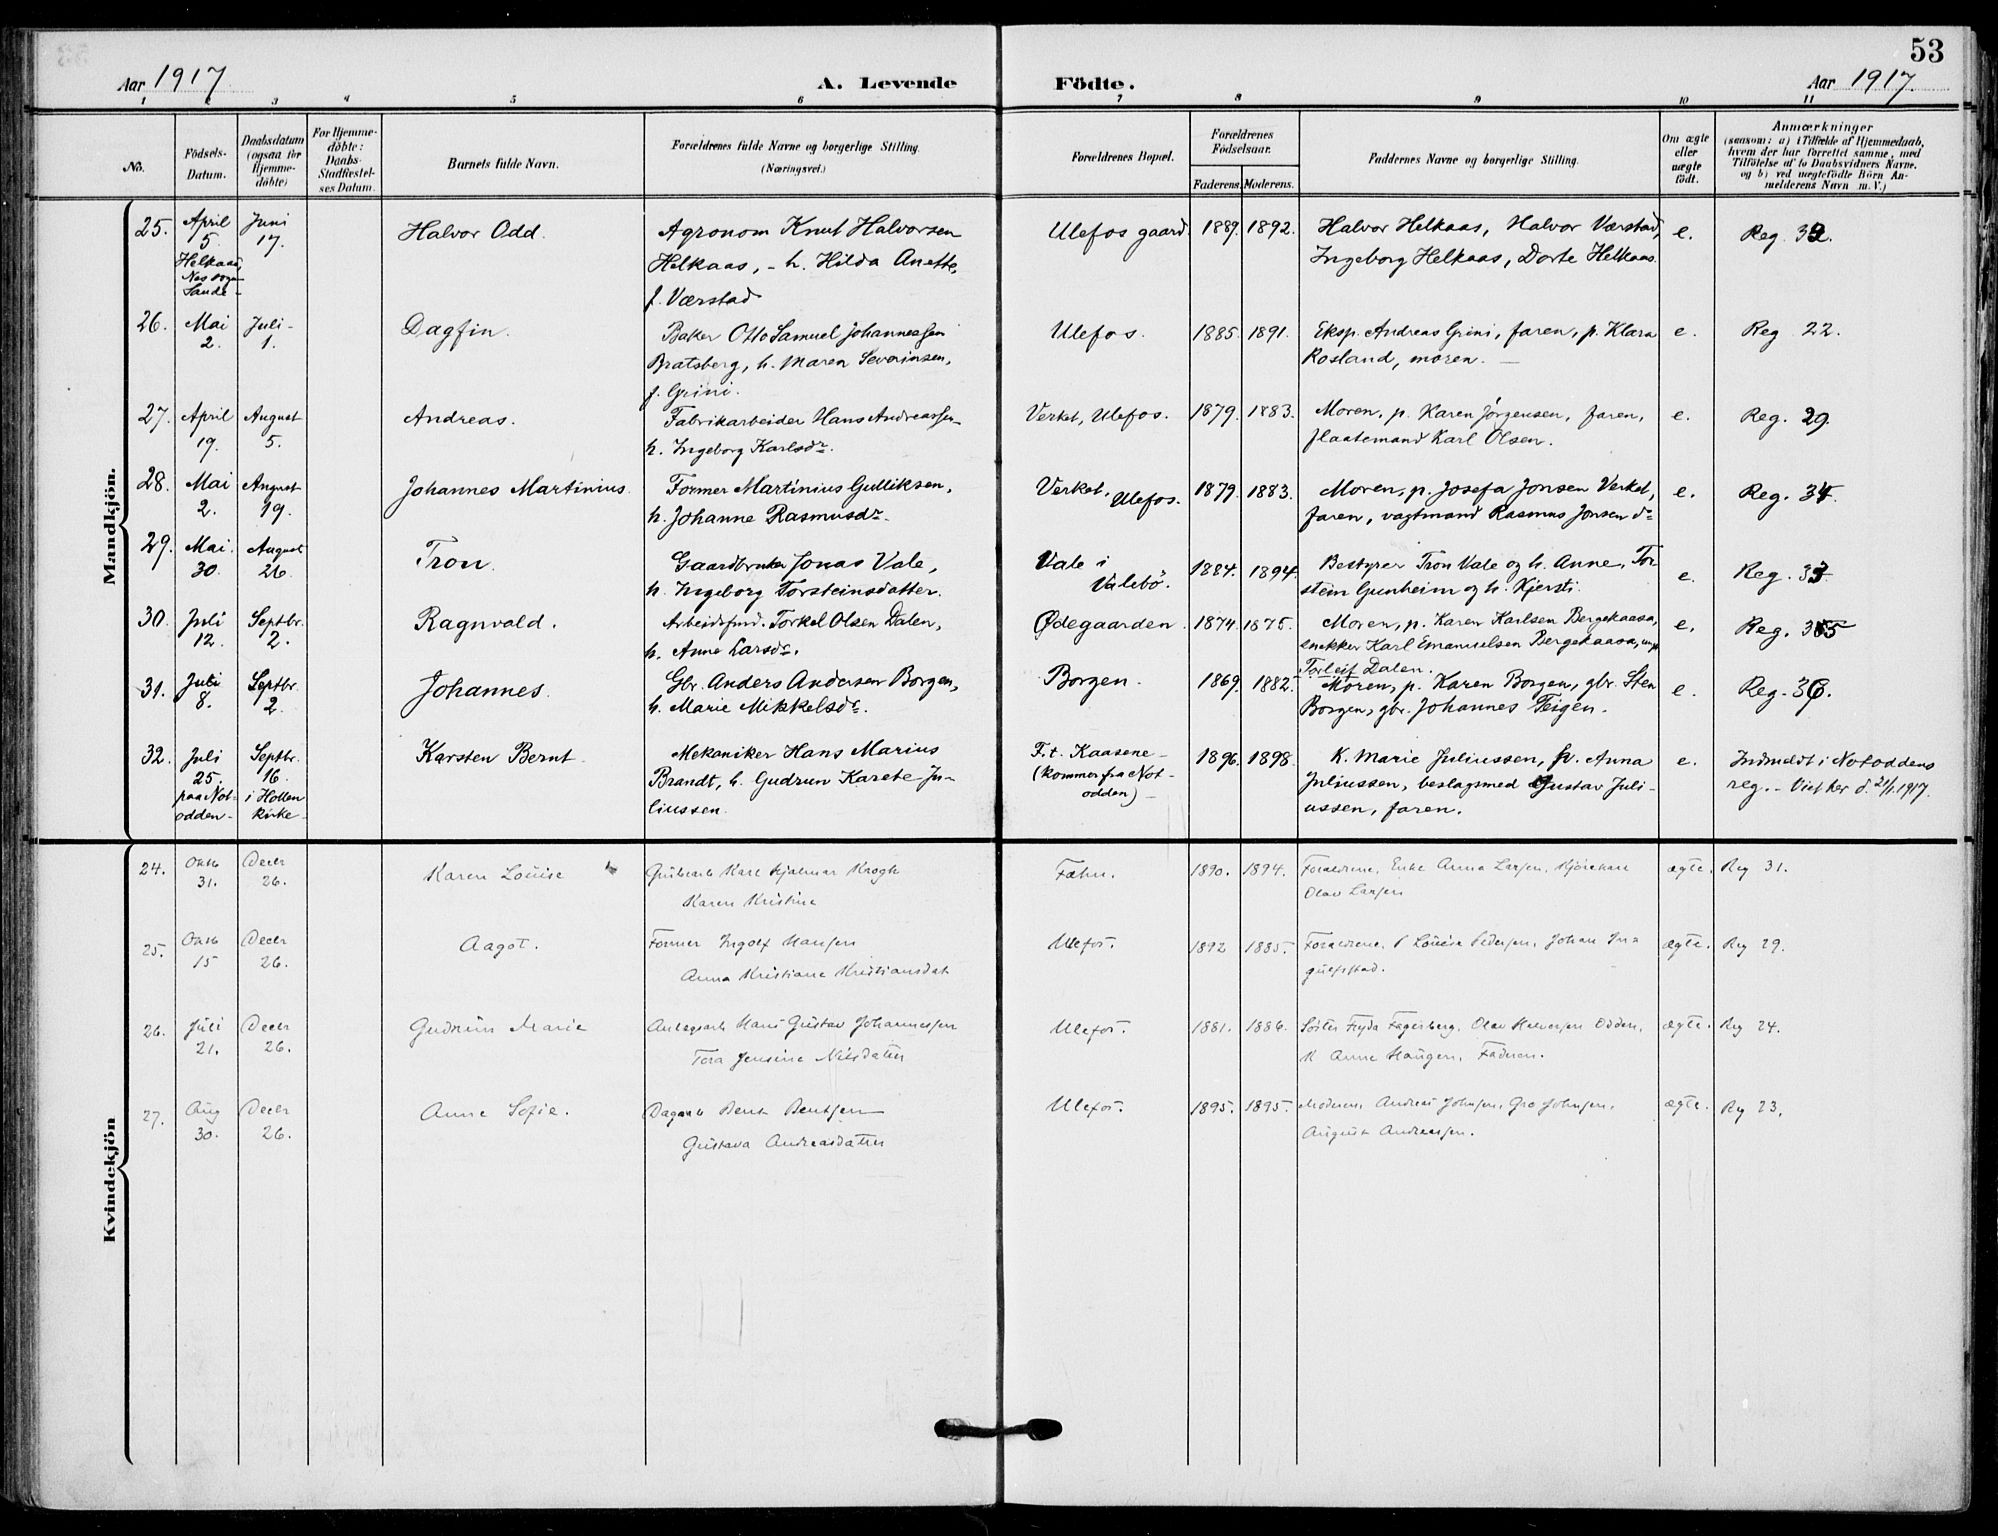 53
Aar 1917
A. Levende Födte.
Aar 1917.
1 2 3 4 5 6 7 8 9 10 11
No.
Födsels-Datum.
Daabsdatum (ogsaa for Hjemme-döbte)
For Hjemme-döbte: Daabs-Stadfæstel-ses Datum.
Barnets fulde Navn.
Forældrenes fulde Navne og borgerlige Stilling. (Næringsvei.)
Forældrenes Bopæl.
Forældrenes Födselsaar.
Faderens. Moderens.
Faddernes Navne og borgerlige Stilling.
Om ægte eller uægte födt.
Anmærkninger
(saasom: a) i Tilfælde af Hjemmedaab, hvem der har forrettet samme, med Tilföielse af to Daabsvidners Navne. og b) ved uægtefödte Börn An-melderens Navn m. V.)
Mandkjön.
25. April 5. Helkaas Sande Juni 17. Halvor Odd. Agronom Knut Halvorsen Ulefos gaard. 1889. 1892. Halvor Helkaas, Halvor Værstad, e. Reg. 32.
Helkaas, - h. Hilda Anette, Ingeborg Helkaas, Dorte Helkaas.
f. Værstad
26. Mai 2. Juli 1. Dagfin. Baker Otto Samuel Johannessen Ulefos. 1885. 1891. Eksp. Andreas Grini, faren, p. Klara e. Reg 22.
Bratsberg, h. Maren Severinsen, Rosland, moren.
f. Grini.
27. April 19. August 5. Andreas. Fabrikarbeider Hans Andreassen Verket, Ulefos. 1879. 1883. Moren, p. Karen Jørgensen, faren, e. Reg. 29.
h. Ingeborg Karlsdr. flaatemand Karl Olsen.
28. Mai 2. August 19. Johannes Martinius. Former Martinius Gulliksen, Verket, Ulefos. 1879. 1883. Moren, p. Josefa Jonsen Verket, e. Reg. 34.
h. Johanne Rasmusdr. faren, vagtmand Rasmus Jonsen do
29. Mai 30. August 26. Tron. Gaardbruker Jonas Vale, Vale i Valebö. 1884. 1894. Bestyrer Tron Vale og h. Anne, Tor- e. Reg. 33.
h. Ingeborg Torsteinsdatter. stein Gunheim og h. Kjersti.
30. Juli 12. Septbr. 2. Ragnvald. Arbeidsfmd. Torkel Olsen Dalen, Ødegaarden. 1874. 1875. Moren, p. Karen Karlsen Bergekaasa, e. Reg. 35
h. Anne Larsdr. snekker Karl Emanuelsen Bergekaasa, ung.
Torleif Dalen.
31. Juli 8. Septbr. 2. Johannes. Gbr. Anders Andersen Borgen, Borgen. 1869. 1882. Moren, p. Karen Borgen, gbr. Sten e. Reg. 36.
h. Marie Mikkelsdr. Borgen, gbr. Johannes Teigen.
32. Juli 25. paa Not-odden. Septbr. 16. i Hollen kirke. Karsten Bernt. Mekaniker Hans Marius F. t. Kaasene (kommer fra Not-odden) 1896. 1898. K. Marie Juliussen, p. Anna e. Indmeldt i Notoddens
Brandt, h. Gudrun Karete Ju- Juliussen, beslagsmed Gustav Juli- reg. - Viet her d. 21/1.1917.
liussen. ussen, faren.
Kvindekjön
24. Oktb 31. Decbr 26. Karen Louise Karl Hjalmar Krogh Fæhn. 1890. 1894. Forældrene, Enke Anna Larsen, ægte. Reg 31.
Karen Kristine Olav Larsen
25. Oktb 15 Decbr 26. Aagot. Former Ingolf Hansen Ulefos. 1892 1885. Forældrene, P Louise Pedersen, Johan ægte. Reg 29.
Anna Kristiane Kristiansdat
26. Juli 21. Decbr 26. Gudrun Marie Hans Gustav Johannessen Ulefos. 1881. 1886. Fagerberg, Olav Halvorsen Odden, ægte. Reg 24.
Tora Jensine Nilsdatter K Anne Haugen, Faderen.
27. Aug 30. Decbr 26. Anne Sofie. Dagarb Bent Bentsen Ulefos. 1895. 1895. Moderen, Andreas Johnsen, Gro Johnsen, ægte. Reg 23.
Gustava Andreasdatter August Andreassen.